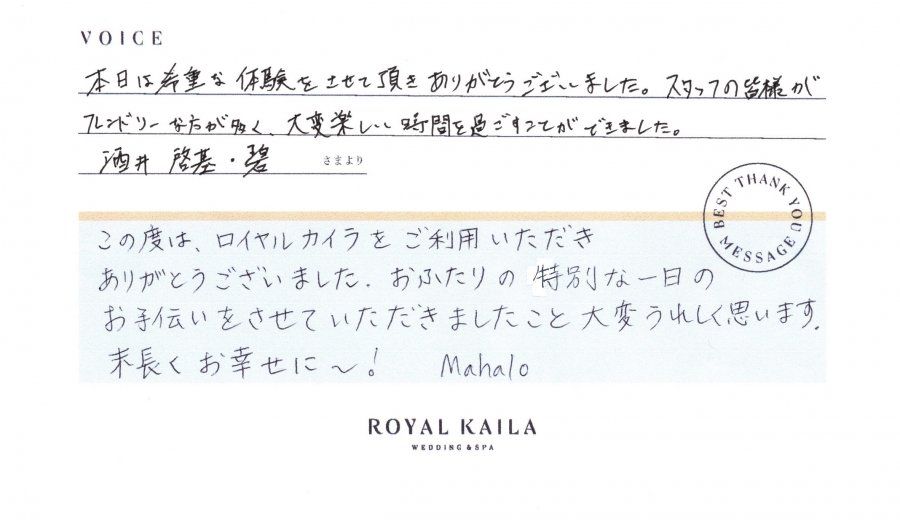 VOICE
本日は希重な体験をさせて頂きありがとうございました。スタッフの皆様が
フレンドリーな方が多く、大変楽しい時間を過ごすことができました。
酒井 啓基・碧 さまより
BEST THANK YOU MESSAGE
この度は、ロイヤルカイラをご利用いただき
ありがとうございました. おふたりの特別な一日の
お手伝いをさせていただきましたこと大変うれしく思います.
末長くお幸せに〜! Mahalo
ROYAL KAILA
WEDDING & SPA